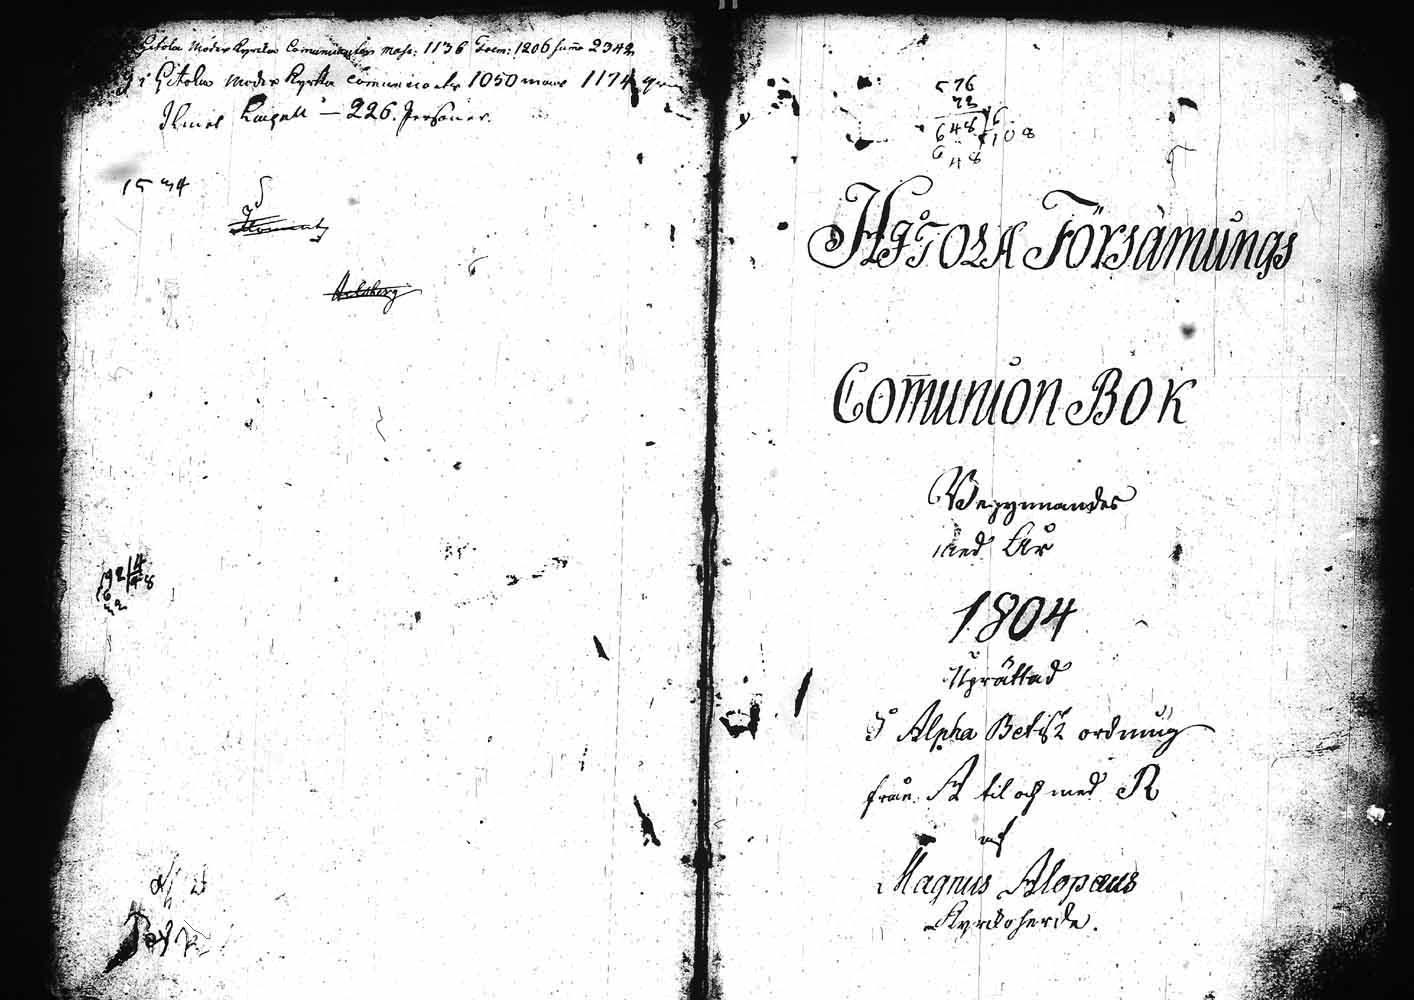 Hitola Moder Kyrckas Communicanter mask: 1136 Foem: 1206 Suma 2342
i Hitolas Moder Kyrka communicanter 1050 1174
Ilmes Kapell — 226. Personer.
1534
Arlsberg
192 4
48
576
72
648 6
6 108
48
HITOLA Församlings
Com̄union BOK
Begynnandes
med År
1804
Uprättad
I Alpha Betisk ordning
från A til och med R
af
Magnus Alopæus
Kyrckoherde.